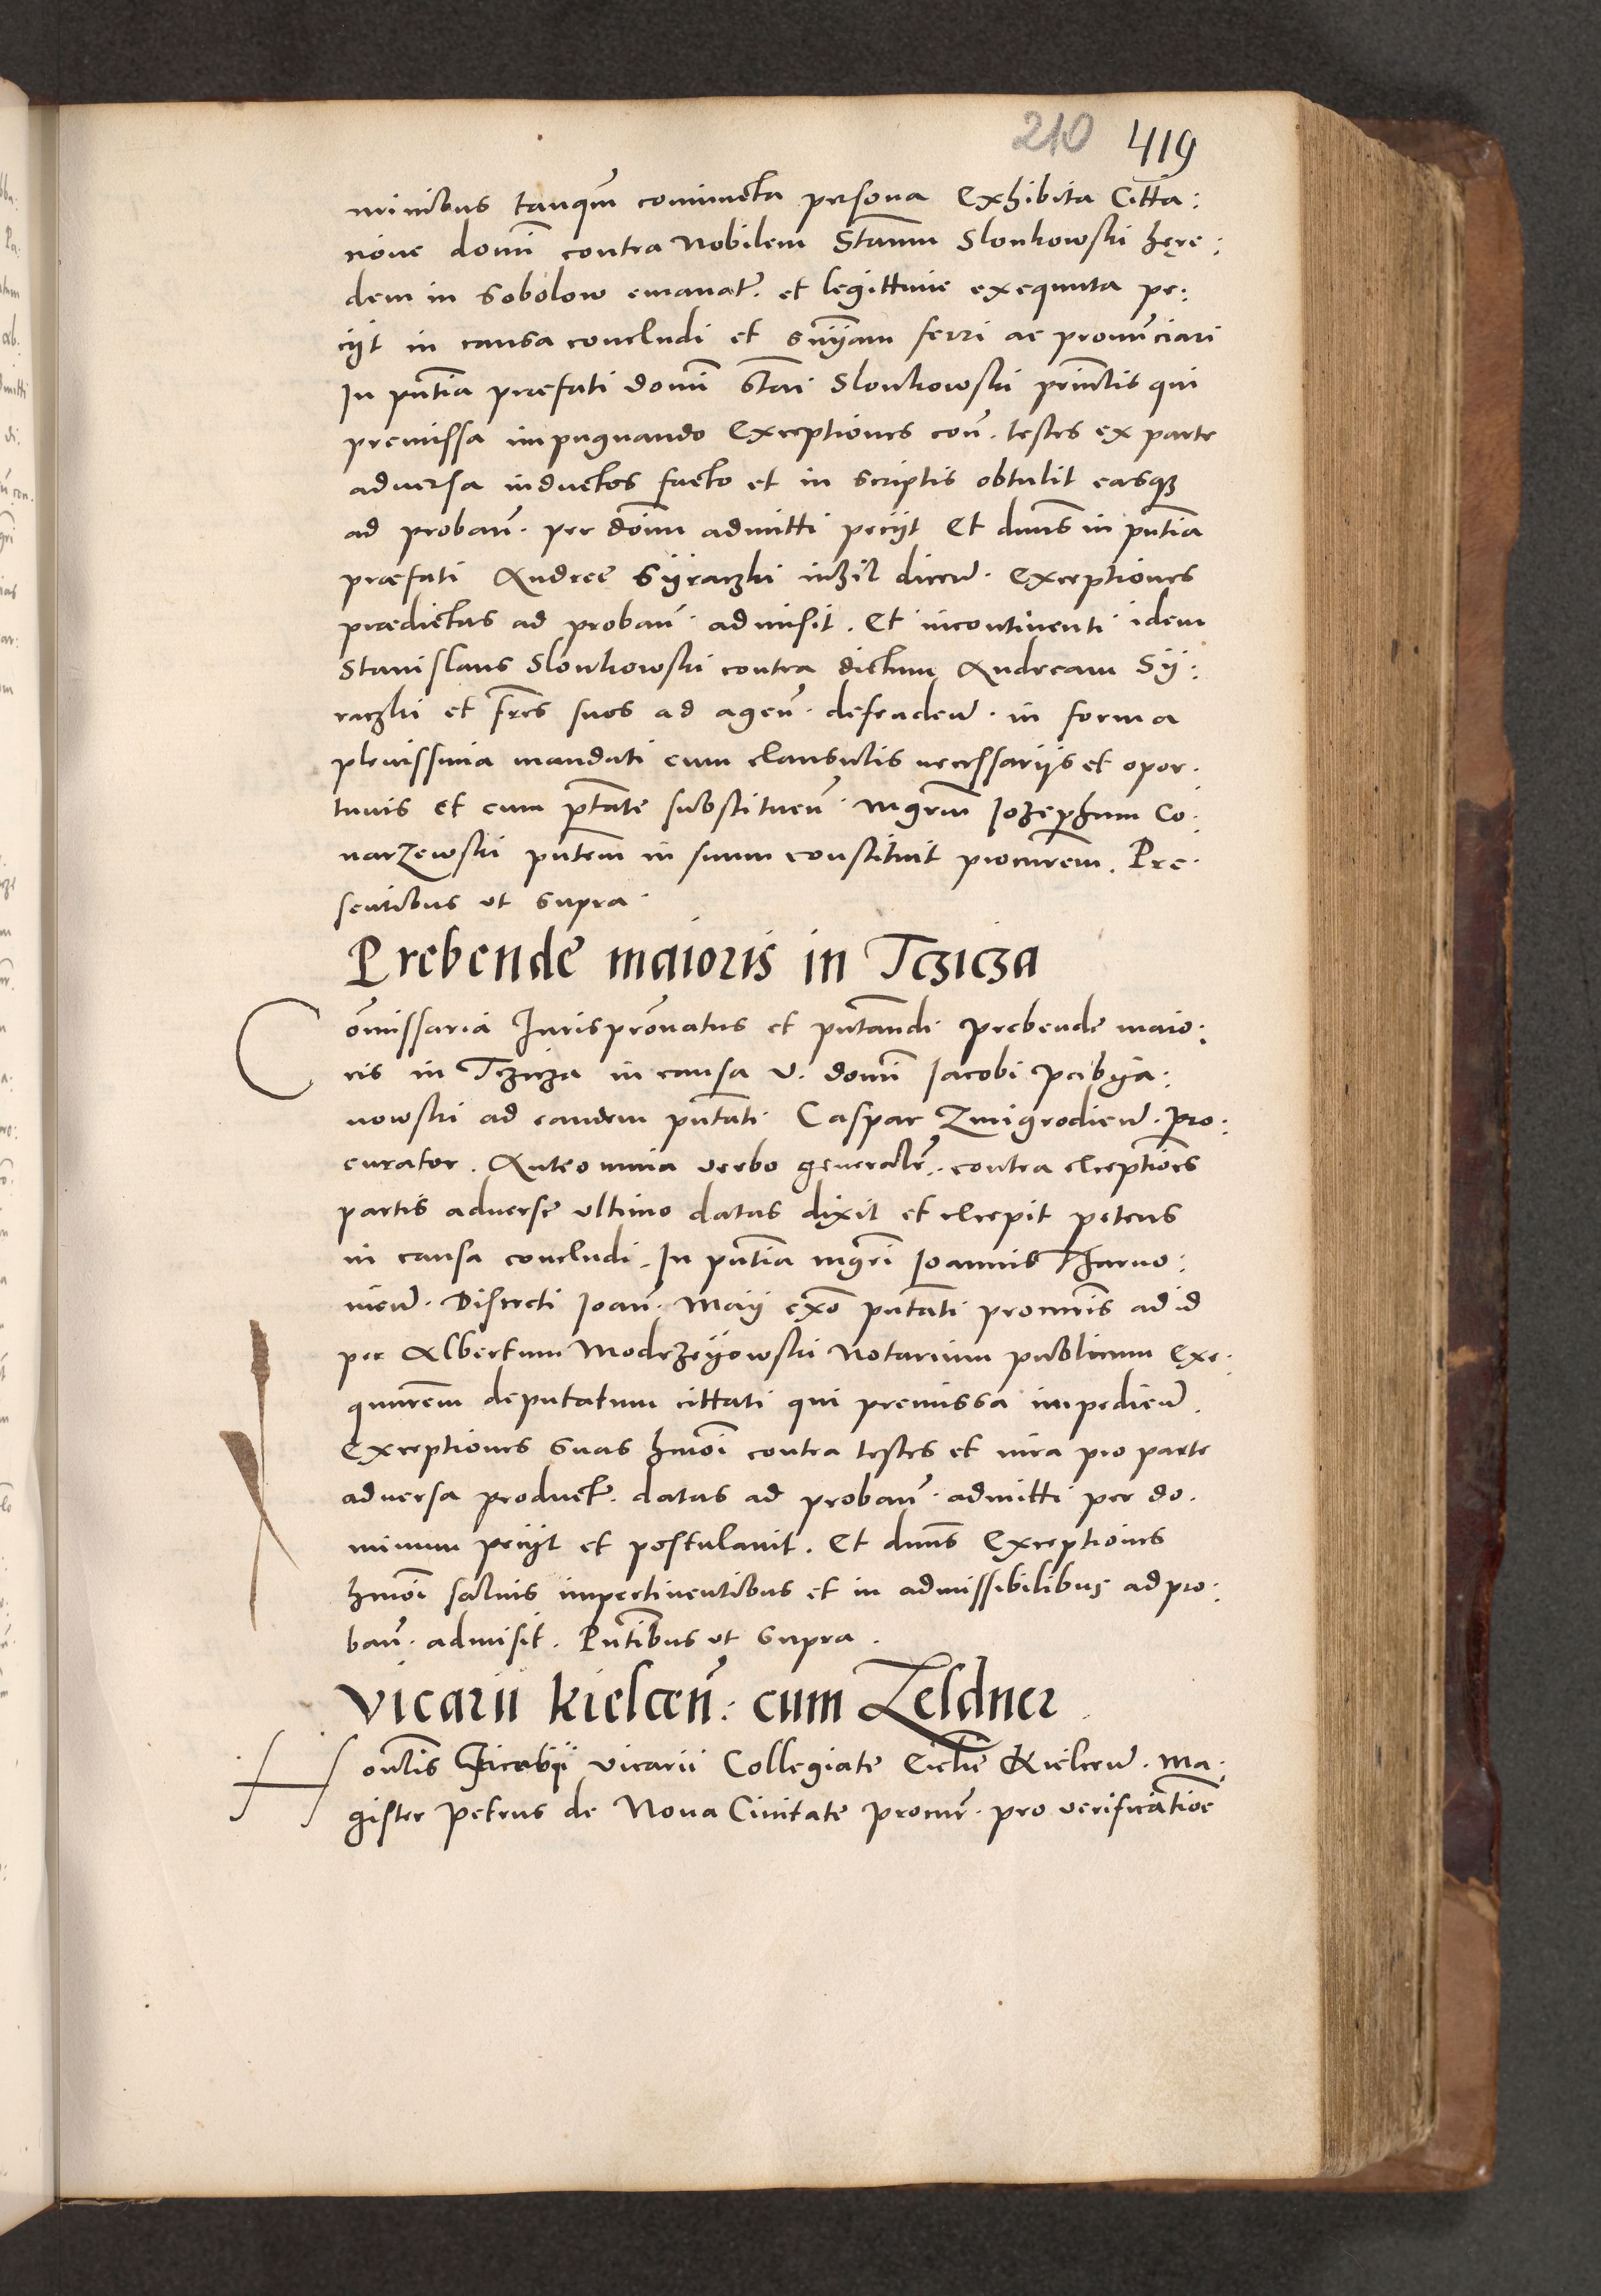 210 419
minibus tanquam coniuncta persona Exhibita Citta:
tione domi contra Nobilem Stannm Slonkowski hęre:
dem in Sobolow emanat. et legittime exequuta pe:
ciit in causa concludi et sniam ferri ac pronunciari
In pntia præfati domi Stai Slonkowski principalis qui
premissa impugnando Exceptiones con. testes ex parte
adversa inductos facto et in scriptis obtulit easq3
ad proban. per domin admitti peciit Et dnns in pntia
præfati Andree Syraczki dicen. Exceptiones
prædictas ad proban. admisit. Et incontinenti idem
Stanislaus Slonkowski contra dictum Andream Sy:
raczki et fres suos ad agen. defenden. in forma
plenissima mandati cum clausulis necessariis et opor.
tunis et cum ptate substituen. mgrm Iozephum Co.
narzewski pntem in suum constituit procurem. Pre.
sentibus ut supra.
Prebende maioris in Tczicza
Comissaria Iurispronatus et pntandi Prebende maio:
ris in Tczicza in causa V. domi Iacobi Peibya:
nowski ad eandem pntati Caspar Zmigrodien. Pro:
curator. Anteomnia verbo generalr. contra exceptiones
partis adverse ultimo datas dixit et excepit petens
in causa concludi. In pntia mgri Ioannis Tharno:
vien. Discreti Ioan. Maii exo pntati procuris ad id
per Albertum Modrzeyowski Notarium publicum Exe.
quurem deputatum cittati qui premissa impedien.
Exceptiones suas hmoi contra testes et iura pro parte
adversa product. datas ad proban. admitti per do.
minum peciit et postulavit. Et dnns Exceptiones
hmoi salvis impertinentibus et in admissibilibus ad pro:
ban. admisit. Pntibus ut supra.
Vicarii kielcen. cum Zeldner
Honlis vicarii Collegiate Ecclie Kielcen. Ma:
gister Petrus de Nova Civitate procur. pro verificatioe